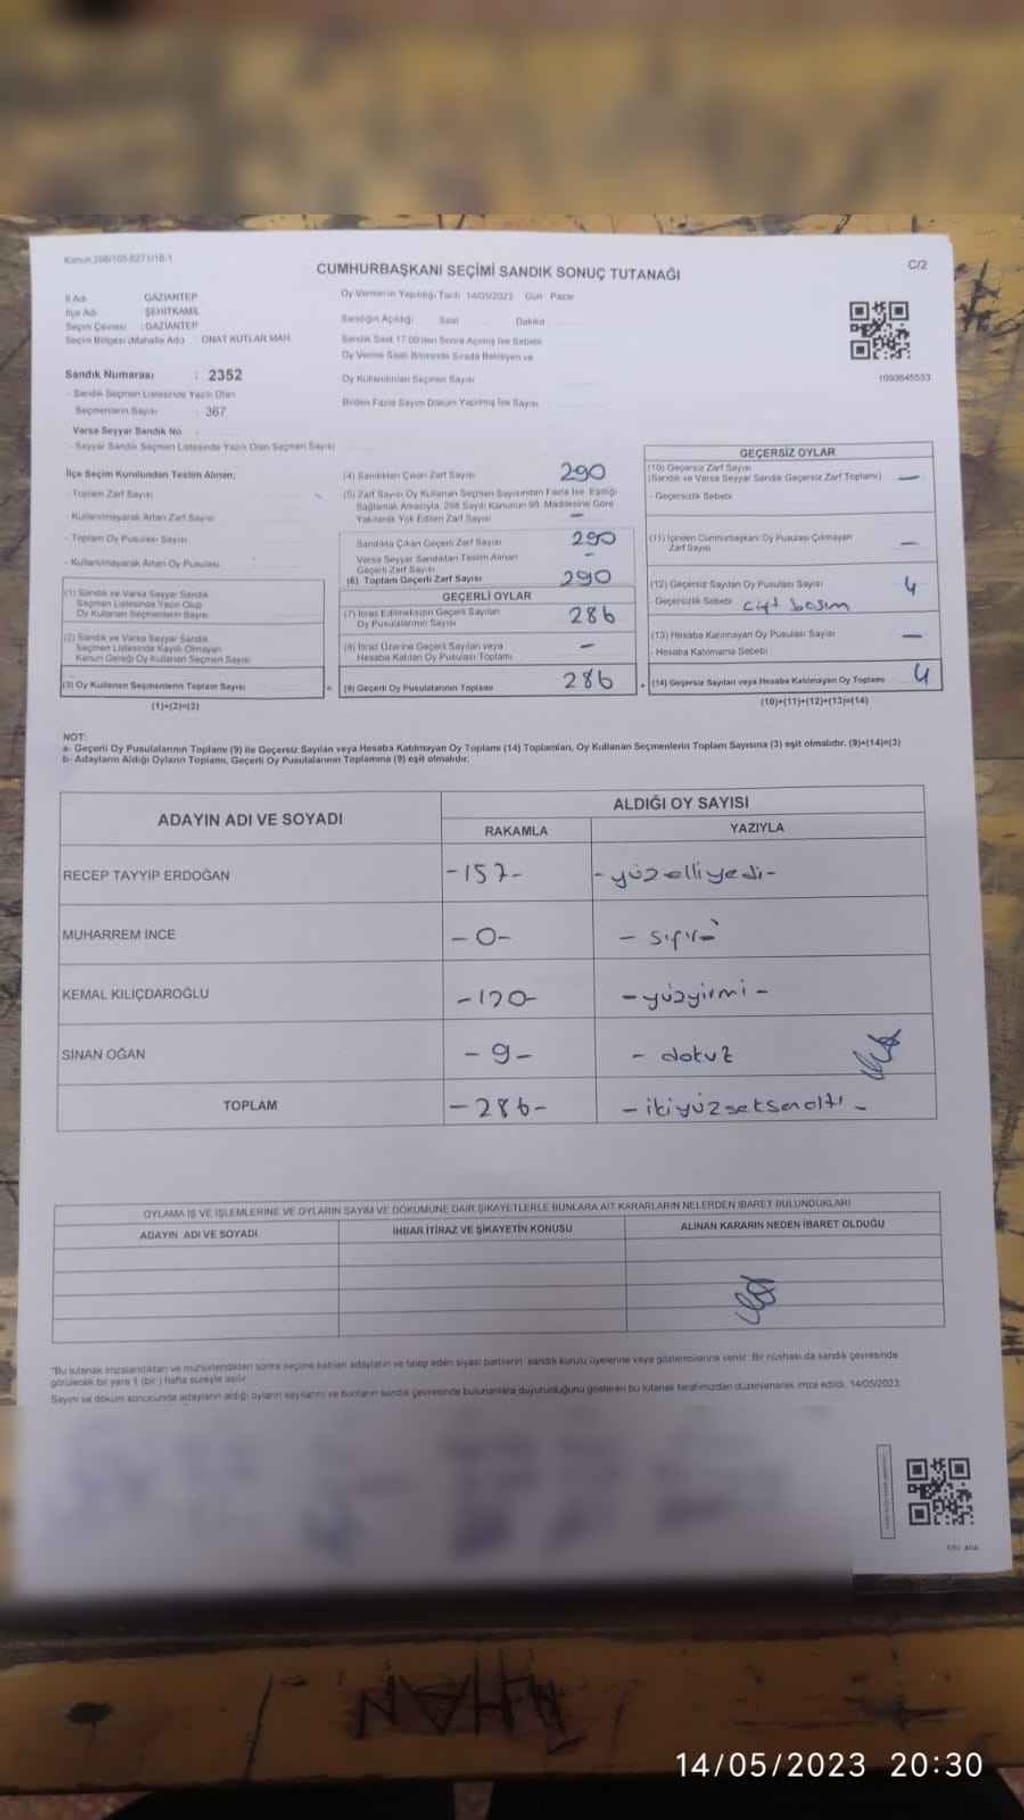 CUMHURBAŞKANI SEÇİMİ SANDIK SONUÇ TUTANAĞI
C/2
İl Adı GAZİANTEP
İlçe Adı ŞEHİTKAMİL
Seçim Çevresi : GAZİANTEP
Seçim Bölgesi (Mahalle Adı) ONAT KUTLAR MAH.
Oy Vermenin Yapıldığı Tarih 14/05/2023 Gün Pazar
Sandığın Açıldığı Saat Dakika
Sandık Saat 17.00'den Sonra Açılmış İse Sebebi
Oy Verme Saati Bitiminde Sırada Bekleyen ve
Oy Kullandırılan Seçmen Sayısı
Birden Fazla Sayım Döküm Yapılmış İse Sayısı
Sandık Numarası : 2352
- Sandık Seçmen Listesinde Yazılı Olan
Seçmenlerin Sayısı : 367
Varsa Seyyar Sandık No
- Seyyar Sandık Seçmen Listesinde Yazılı Olan Seçmen Sayısı
İlçe Seçim Kurulundan Teslim Alınan;
- Toplam Zarf Sayısı
- Kullanılmayarak Artan Zarf Sayısı
- Toplam Oy Pusulası Sayısı
- Kullanılmayarak Artan Oy Pusulası
(1) Sandık ve Varsa Seyyar Sandık
Seçmen Listesinde Yazılı Olup
Oy Kullanan Seçmenlerin Sayısı
(2) Sandık ve Varsa Seyyar Sandık
Seçmen Listesinde Kayıtlı Olmayan
Kanun Gereği Oy Kullanan Seçmen Sayısı
(3) Oy Kullanan Seçmenlerin Toplam Sayısı
(1)+(2)=(3)
(4) Sandıktan Çıkan Zarf Sayısı 290
(5) Zarf Sayısı Oy Kullanan Seçmen Sayısından Fazla İse, Eşitliği
Sağlamak Amacıyla, 298 Sayılı Kanunun 98. Maddesine Göre
Yakılarak Yok Edilen Zarf Sayısı -
Sandıkta Çıkan Geçerli Zarf Sayısı 290
Varsa Seyyar Sandıktan Teslim Alınan
Geçerli Zarf Sayısı -
(6) Toplam Geçerli Zarf Sayısı 290
GEÇERLİ OYLAR
(7) İtiraz Edilmeksizin Geçerli Sayılan
Oy Pusulalarının Sayısı 286
(8) İtiraz Üzerine Geçerli Sayılan veya
Hesaba Katılan Oy Pusulası Toplamı -
= (9) Geçerli Oy Pusulalarının Toplamı 286
GEÇERSİZ OYLAR
(10) Geçersiz Zarf Sayısı
(Sandık ve Varsa Seyyar Sandık Geçersiz Zarf Toplamı) -
- Geçersizlik Sebebi
(11) İçinden Cumhurbaşkanı Oy Pusulası Çıkmayan
Zarf Sayısı -
(12) Geçersiz Sayılan Oy Pusulası Sayısı 4
- Geçersizlik Sebebi çift basım
(13) Hesaba Katılmayan Oy Pusulası Sayısı -
- Hesaba Katılmama Sebebi
+ (14) Geçersiz Sayılan veya Hesaba Katılmayan Oy Toplamı 4
(10)+(11)+(12)+(13)=(14)
NOT:
a- Geçerli Oy Pusulalarının Toplamı (9) ile Geçersiz Sayılan veya Hesaba Katılmayan Oy Toplamı (14) Toplamları, Oy Kullanan Seçmenlerin Toplam Sayısına (3) eşit olmalıdır. (9)+(14)=(3)
b- Adayların Aldığı Oyların Toplamı, Geçerli Oy Pusulalarının Toplamına (9) eşit olmalıdır.
ADAYIN ADI VE SOYADI
ALDIĞI OY SAYISI
RAKAMLA YAZIYLA
RECEP TAYYİP ERDOĞAN -157- -yüzelliyedi-
MUHARREM İNCE -0- -sıfır-
KEMAL KILIÇDAROĞLU -120- -yüzyirmi-
SİNAN OĞAN -9- - dokuz
TOPLAM -286- -ikiyüzseksenaltı-
OYLAMA İŞ VE İŞLEMLERİNE VE OYLARIN SAYIM VE DÖKÜMÜNE DAİR ŞİKAYETLERLE BUNLARA AİT KARARLARIN NELERDEN İBARET BULUNDUKLARI
ADAYIN ADI VE SOYADI
İHBAR İTİRAZ VE ŞİKAYETİN KONUSU
ALINAN KARARIN NEDEN İBARET OLDUĞU
"Bu tutanak imzalandıktan ve mühürlendikten sonra seçime katılan adayların ve talep eden siyasi partilerin sandık kurulu üyelerine veya gözlemcilerine verilir. Bir nüshası da sandık çevresinde
görülecek bir yere 1 (bir ) hafta süreyle asılır.
Sayım ve döküm sonucunda adayların aldığı oyların sayılarını ve bunların sandık çevresinde bulunanlara duyurulduğunu gösteren bu tutanak tarafımızdan düzenlenerek imza edildi. 14/05/2023
14/05/2023 20:30